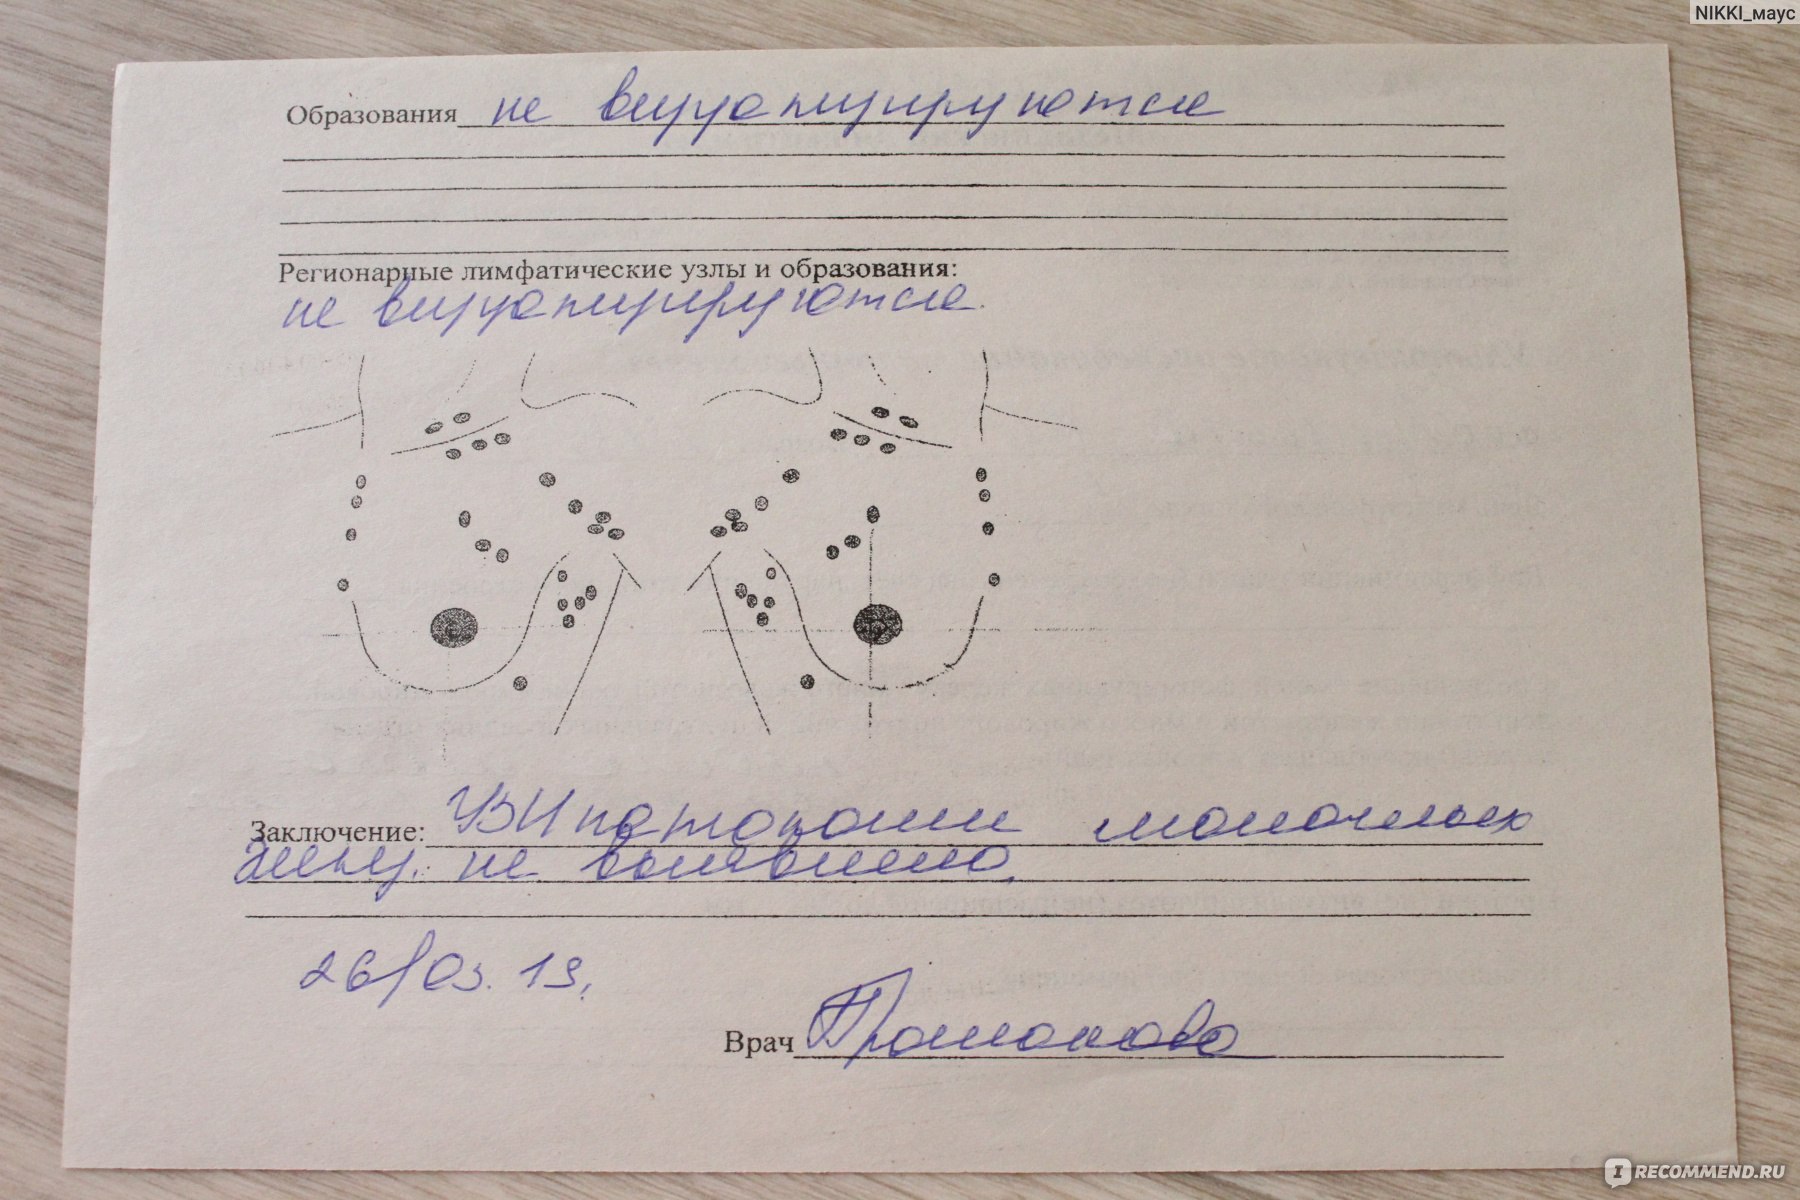 NIKKI_маус
Образования не визуализируются
Регионарные лимфатические узлы и образования:
не визуализируются.
Заключение: УЗИ патологии молочных
желез. не выявлено.
26/03.19.
Врач
RECOMMEND.RU